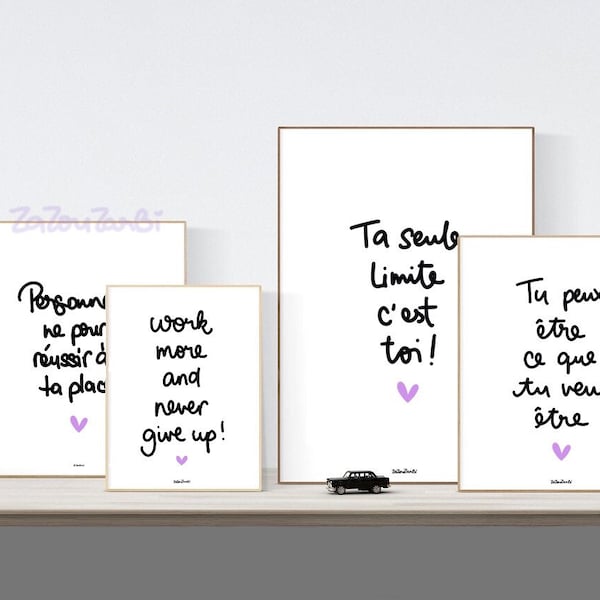 ZaZouZanBi
Personn
ne pour
réussir à
ta plac
work
more
and
never
give up!
ZaZouZanBi
Ta seule
limite
c'est
toi!
ZaZouZanBi
Tu peux
être
ce que
tu veu
être
ZaZouZanBi